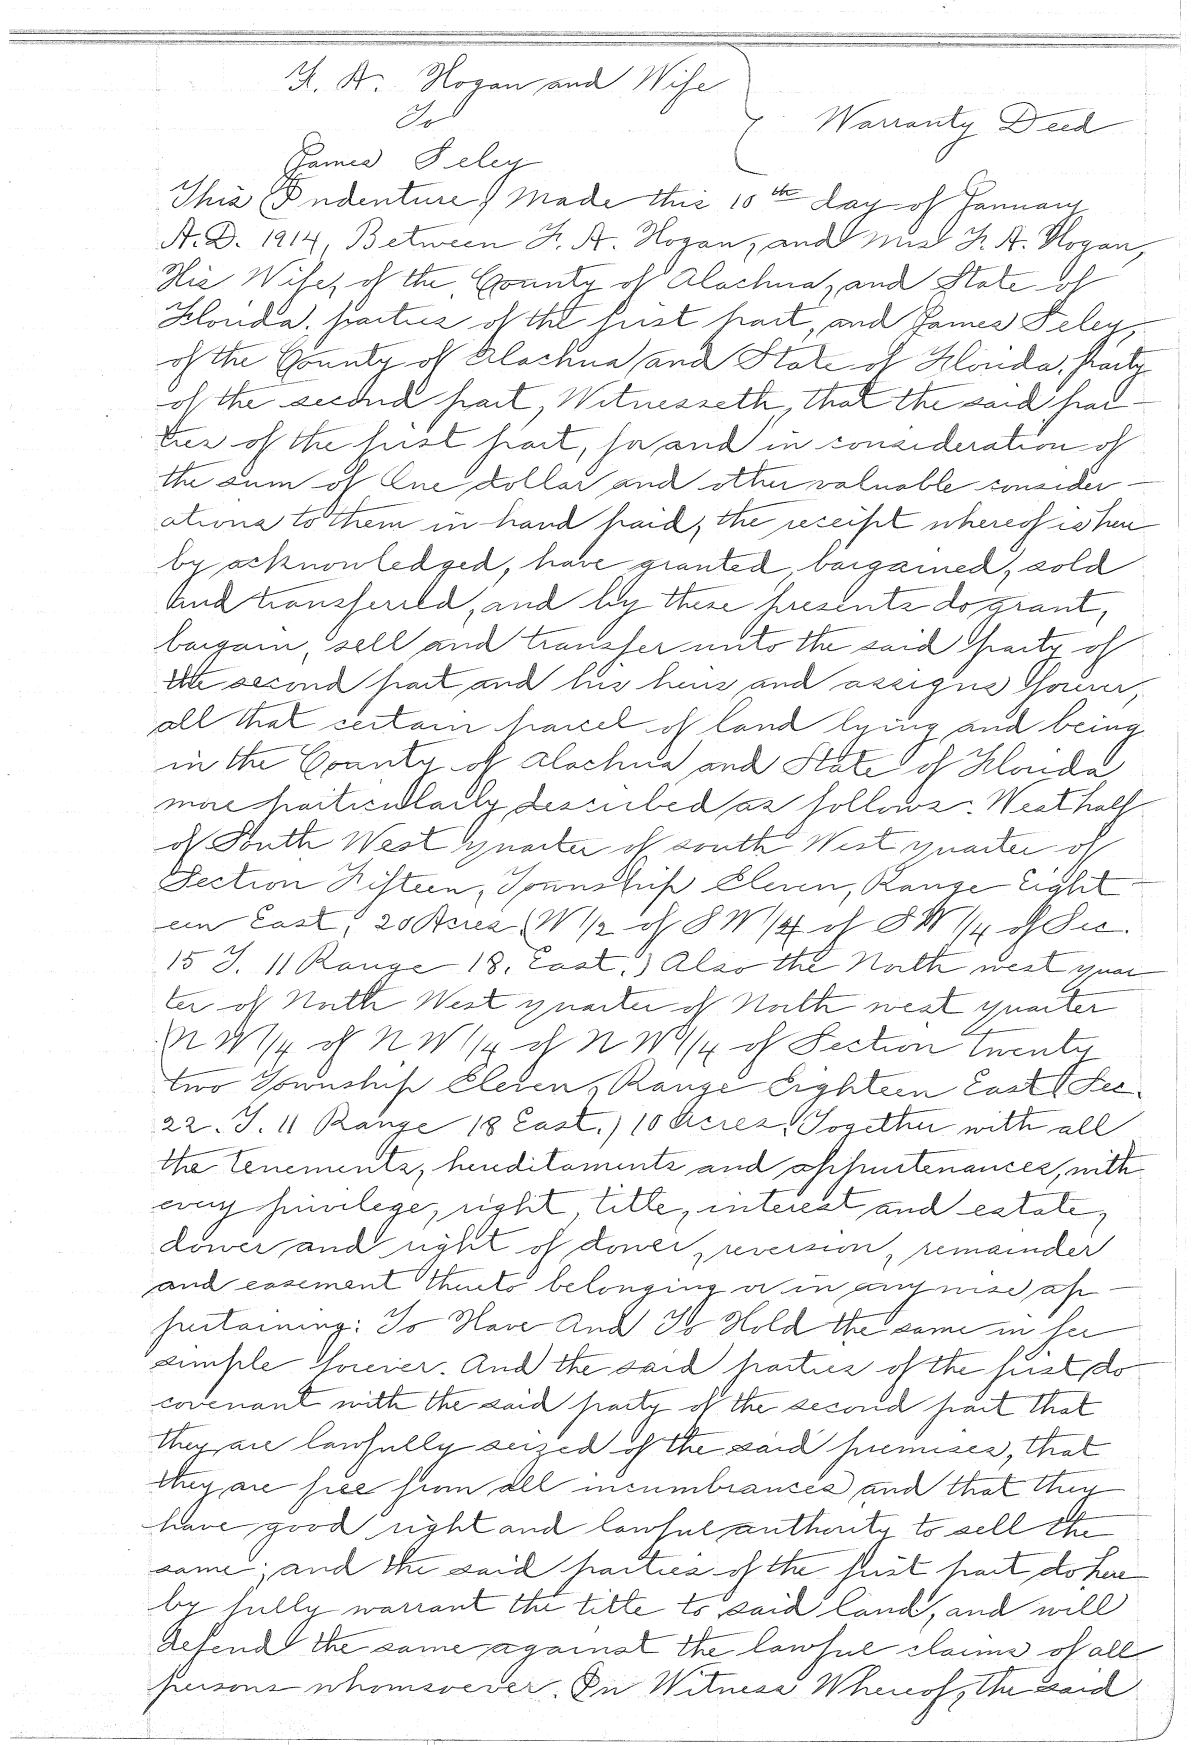 F. A. Hogan and Wife
To
Warranty Deed
James Seley
This Indenture, Made this 10th day of January
A.D. 1914, Between F. A. Hogan, and Mrs F. A. Hogan,
His Wife, of the County of Alachua, and State of
Florida, parties of the first part, and James Seley,
of the County of Alachua and State of Florida, party
of the second part, Witnesseth, that the said par-
ties of the first part, for and in consideration of
the sum of One dollar and other valuable consider-
ations to them in hand paid, the receipt whereof is here
by acknowledged, have granted, bargained, sold
and transferred, and by these presents do grant,
bargain, sell and transfer unto the said party of
the second part and his heirs and assigns forever,
all that certain parcel of land lying and being
in the County of Alachua and State of Florida
more particularly described as follows: West half
of South West quarter of south West quarter of
Section Fifteen, Township Eleven, Range Eight-
een East, 20 Acres, (W 1/2 of S W 1/4 of S W 1/4 of Sec.
15 T. 11 Range 18. East.) Also the North west quar
ter of North West quarter of North west quarter
(N W 1/4 of N W 1/4 of N W 1/4 of Section twenty
two Township Eleven, Range Eighteen East (Sec.
22. T. 11 Range 18 East.) 10 acres. Together with all
the tenements, hereditaments and appurtenances, with
every privilege, right, title, interest and estate,
dower and right of dower, reversion, remainder
and easement thereto belonging or in any wise ap-
pertaining: To Have And To Hold the same in fee
simple forever. And the said parties of the first do
covenant with the said party of the second part that
they are lawfully seized of the said premises, that
they are free from all incumbrances and that they
have good right and lawful authority to sell the
same; and the said parties of the first part do here
by fully warrant the title to said land, and will
defend the same against the lawful claims of all
persons whomsoever. In Witness Whereof, the said